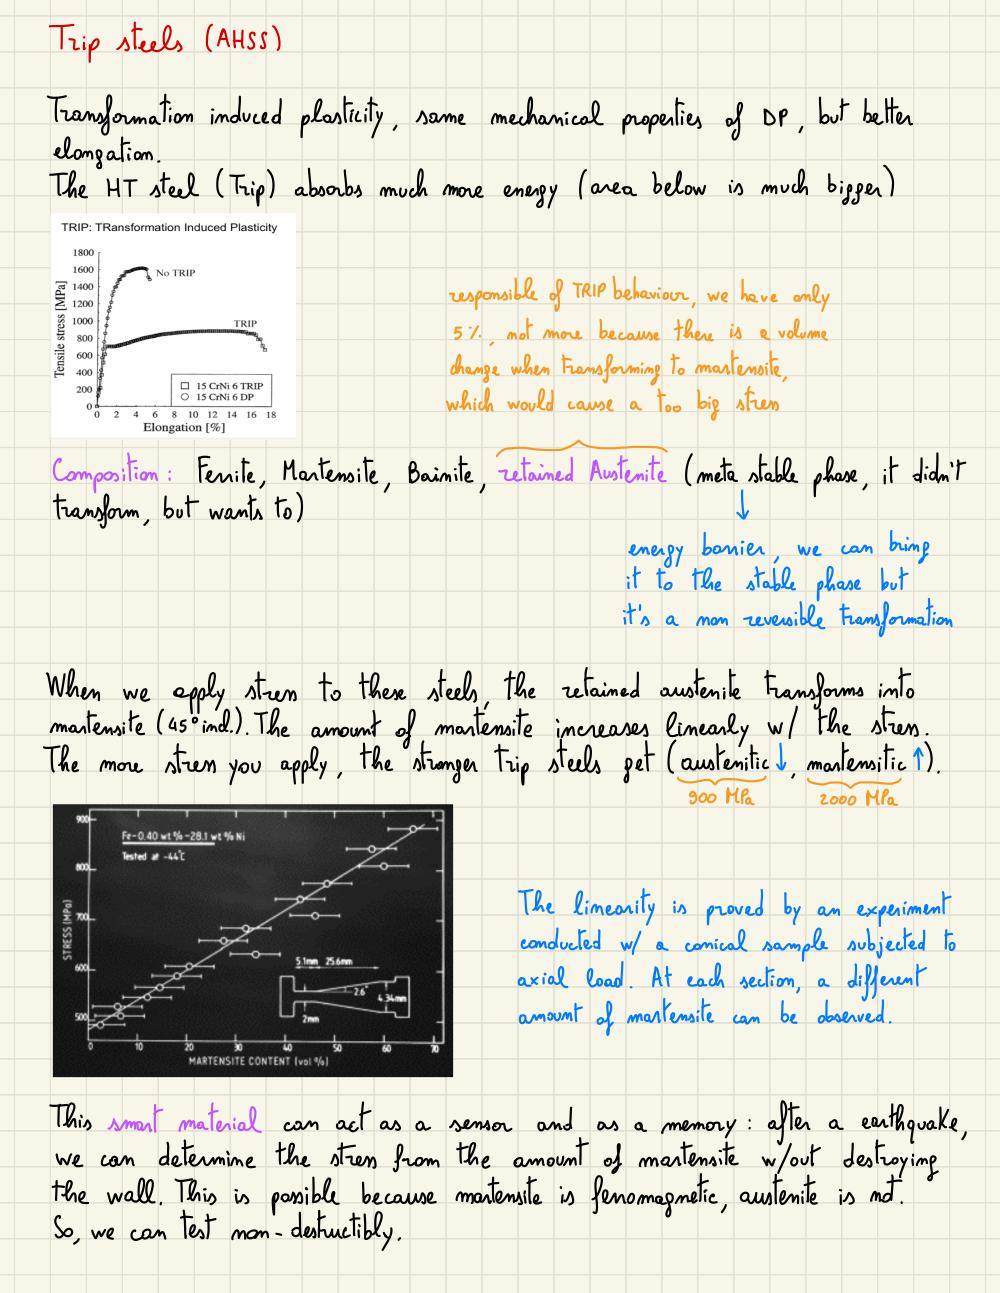 Trip steels (AHSS)
Transformation induced plasticity, same mechanical properties of DP, but better
elongation.
The HT steel (Trip) absorbs much more energy (area below is much bigger)
TRIP: TRansformation Induced Plasticity
Tensile stress [MPa]
1800
1600
1400
1200
1000
800
600
400
200
0
No TRIP
TRIP
15 CrNi 6 TRIP
15 CrNi 6 DP
0 2 4 6 8 10 12 14 16 18
Elongation [%]
responsible of TRIP behaviour, we have only
5%, not more because there is a volume
change when transforming to martensite,
which would cause a too big stress
Composition: Ferrite, Martensite, Bainite, retained Austenite (meta stable phase, it didn't
transform, but wants to)
↓
energy barrier, we can bring
it to the stable phase but
it's a non reversible transformation
When we apply stress to these steels, the retained austenite transforms into
martensite (45° ind.). The amount of martensite increases linearly w/ the stress.
The more stress you apply, the stronger trip steels get (austenitic ↓, martensitic ↑).
900 MPa 2000 MPa
STRESS (MPa)
900
800
700
600
500
Fe-0.40 wt%-28.1 wt%Ni
Tested at -44°C
5.1mm 25.6mm
2.6°
4.34mm
2mm
0 10 20 30 40 50 60 70
MARTENSITE CONTENT (vol%)
The linearity is proved by an experiment
conducted w/ a conical sample subjected to
axial load. At each section, a different
amount of martensite can be observed.
This smart material can act as a sensor and as a memory: after a earthquake,
we can determine the stress from the amount of martensite w/out destroying
the wall. This is possible because martensite is ferromagnetic, austenite is not.
So, we can test non-destructibly.